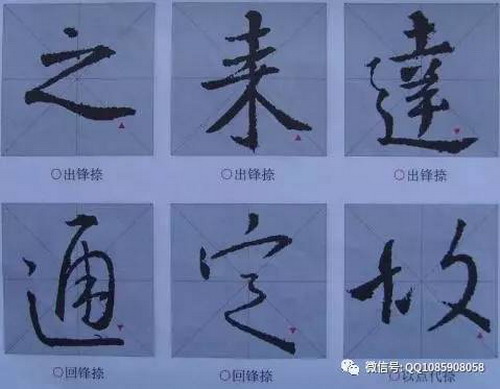 之 来 達
○出锋捺 ○出锋捺 ○出锋捺
通 定 故
○回锋捺 ○回锋捺 ○以点代捺
微信号: QQ1085908058